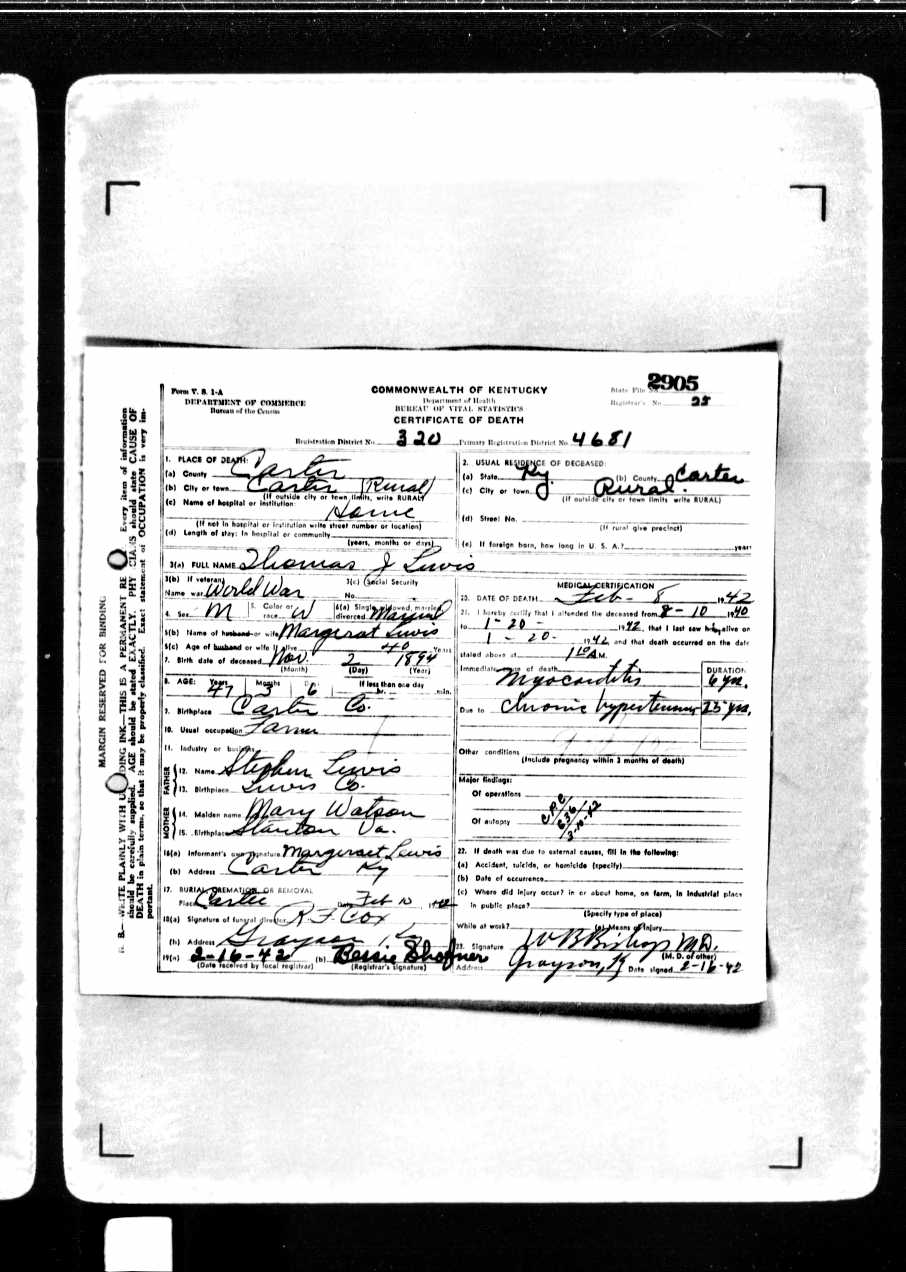 MARGIN RESERVED FOR BINDING
N. B.—WRITE PLAINLY WITH DING INK—THIS IS A PERMANENT RE Every item of information
should be carefully supplied. AGE should be stated EXACTLY. PHY CIANS should state CAUSE OF
DEATH in plain terms, so that it may be properly classified. Exact statement of OCCUPATION is very im-
portant.
Form V. S. 1-A
DEPARTMENT OF COMMERCE
Bureau of the Census
COMMONWEALTH OF KENTUCKY
Department of Health
BUREAU OF VITAL STATISTICS
CERTIFICATE OF DEATH
State File No. 2905
Registrar's No. 25
Registration District No. 320 Primary Registration District No. 4681
1. PLACE OF DEATH:
(a) County Carter
(b) City or town Carter (Rural)
(If outside city or town limits, write RURAL)
(c) Name of hospital or institution
Home
(If not in hospital or institution write street number or location)
(d) Length of stay: In hospital or community
(years, months or days)
2. USUAL RESIDENCE OF DECEASED:
(a) State Ky. (b) County Carter
(c) City or town Rural.
(If outside city or town limits write RURAL)
(d) Street No.
(If rural give precinct)
(e) If foreign born, how long in U. S. A.? years
3(a) FULL NAME Thomas J Lewis
3(b) If veteran
Name war World War
3(c) Social Security
No.
4. Sex M 5. Color or race W 6(a) Single, widowed, married, divorced Married
6(b) Name of husband or wife Margerat Lewis
6(c) Age of husband or wife if alive 40 Years
7. Birth date of deceased Nov. 2 1894
(Month) (Day) (Year)
8. AGE: Years Months Days If less than one day
47 3 6 hr. min.
9. Birthplace Carter Co.
10. Usual occupation Farmer
11. Industry or business
FATHER
12. Name Stephen Lewis
13. Birthplace Lewis Co.
MOTHER
14. Maiden name Mary Watson
15. Birthplace Stanton Va.
16(a) Informant's own signature Margeraet Lewis
(b) Address Carter Ky
17. BURIAL, CREMATION, OR REMOVAL
Place Carter Date Feb 10, 1942
18(a) Signature of funeral director R. F. Cox
(b) Address Grayson, Ky
19(a) 2-16-42 (b) Bessie Shofner
(Date received by local registrar) (Registrar's signature)
MEDICAL CERTIFICATION
20. DATE OF DEATH Feb- 8 1942
21. I hereby certify that I attended the deceased from 8-10 1940
to 1-20- 1942, that I last saw him alive on
1-20- 1942 and that death occurred on the date
stated above at 1 10 A M.
Immediate cause of death DURATION
Myocarditis 6 yrs.
Due to Chronic hypertension 25 yrs.
Other conditions
(Include pregnancy within 3 months of death)
Major findings:
Of operations
Of autopsy
CPC/
636/
3-10-42
22. If death was due to external causes, fill in the following:
(a) Accident, suicide, or homicide (specify)
(b) Date of occurrence
(c) Where did injury occur? in or about home, on farm, in industrial place
in public place?
(Specify type of place)
While at work? (e) Means of Injury
23. Signature W B Bishop M.D.
(M. D. or other)
Address Grayson, Ky Date signed 2-16-42